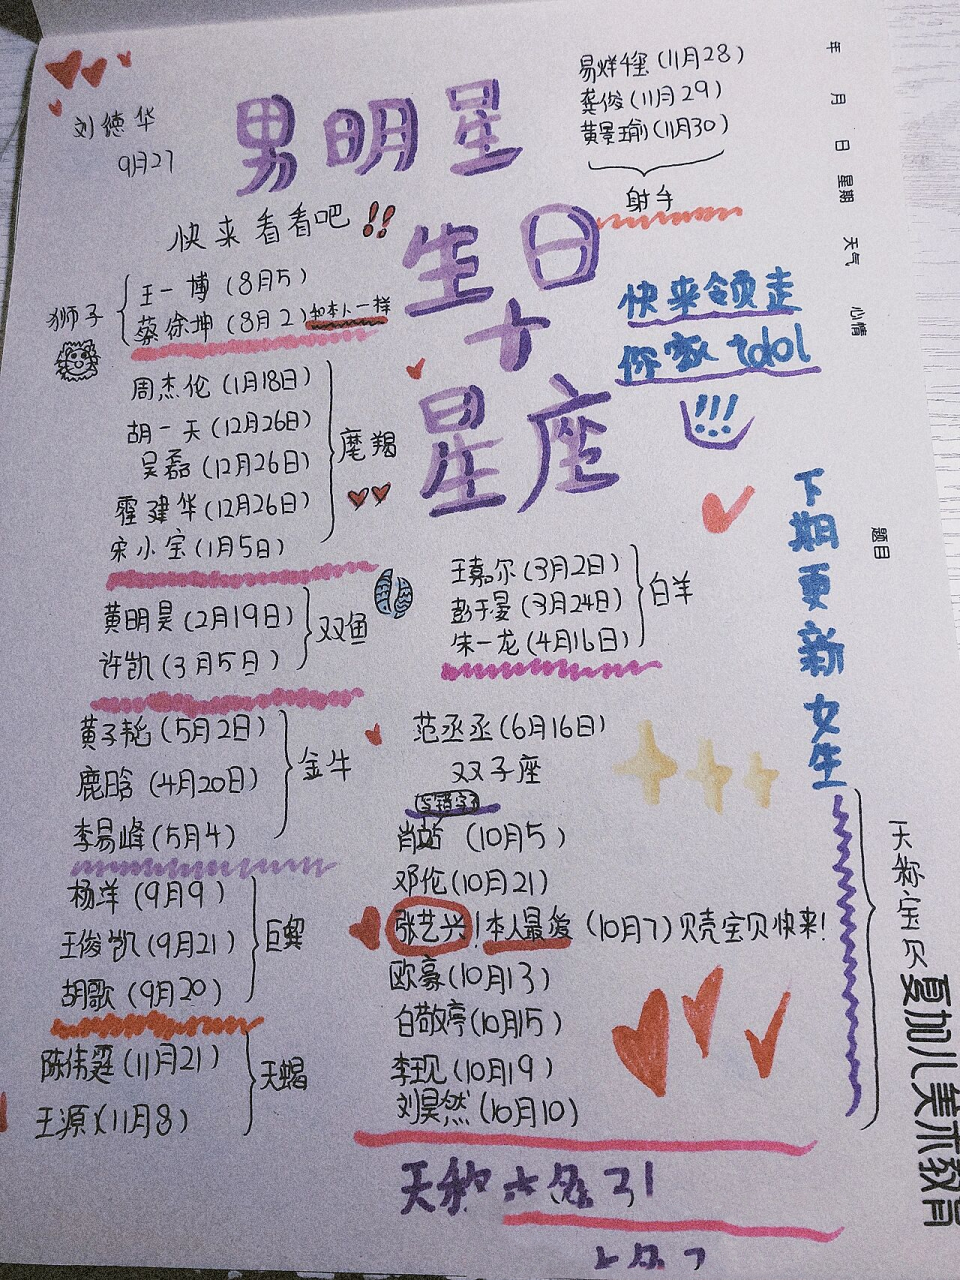 刘德华
9月27
男明星
生日
+
星座
易烊千玺(11月28)
龚俊(11月29)
黄景瑜(11月30)
射手
快来看看吧!!
狮子
王一博(8月5)
蔡徐坤(8月2)和本人一样
快来领走
你家Idol
!!!
周杰伦(1月18日)
胡一天(12月26日)
吴磊(12月26日)
霍建华(12月26日)
宋小宝(1月5日)
摩羯
黄明昊(2月19日)
许凯(3月5日)
双鱼
王嘉尔(3月2日)
彭于晏(3月24日)
朱一龙(4月16日)
白羊
黄子韬(5月2日)
鹿晗(4月20日)
李易峰(5月4)
金牛
范丞丞(6月16日)
双子座
写错字了
肖站(10月5)
邓伦(10月21)
张艺兴!本人最爱(10月7)贝壳宝贝快来!
欧豪(10月13)
白敬亭(10月15)
李现(10月19)
刘昊然(10月10)
天称宝贝
杨洋(9月9)
王俊凯(9月21)
胡歌(9月20)
巨蟹
陈伟霆(11月21)
王源(11月8)
天蝎
下期更新女生
天称太多了!
年 月 日 星期 天气 心情
题目
夏加儿美术教育